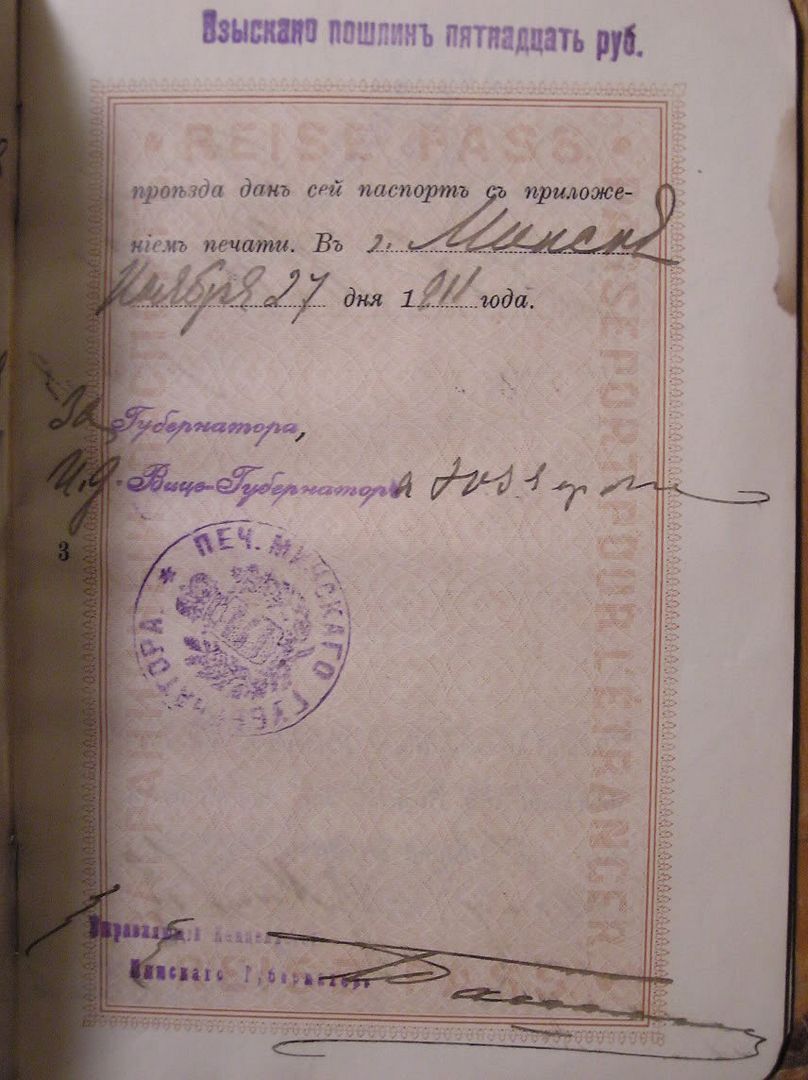 Взыскано пошлинъ пятнадцать руб.
REISE PASS.
проѣзда данъ сей паспортъ съ приложе-
ніемъ печати. Въ г. Минскѣ
Ноября 27 дня 1911 года.
PASSEPORT POUR L'ETRANGER
За Губернатора,
И.д. Вице-Губернатора
3
ПЕЧ. МИНСКАГО ГУБЕРНАТОРА.
Управляющій
Минскаго Губернатора